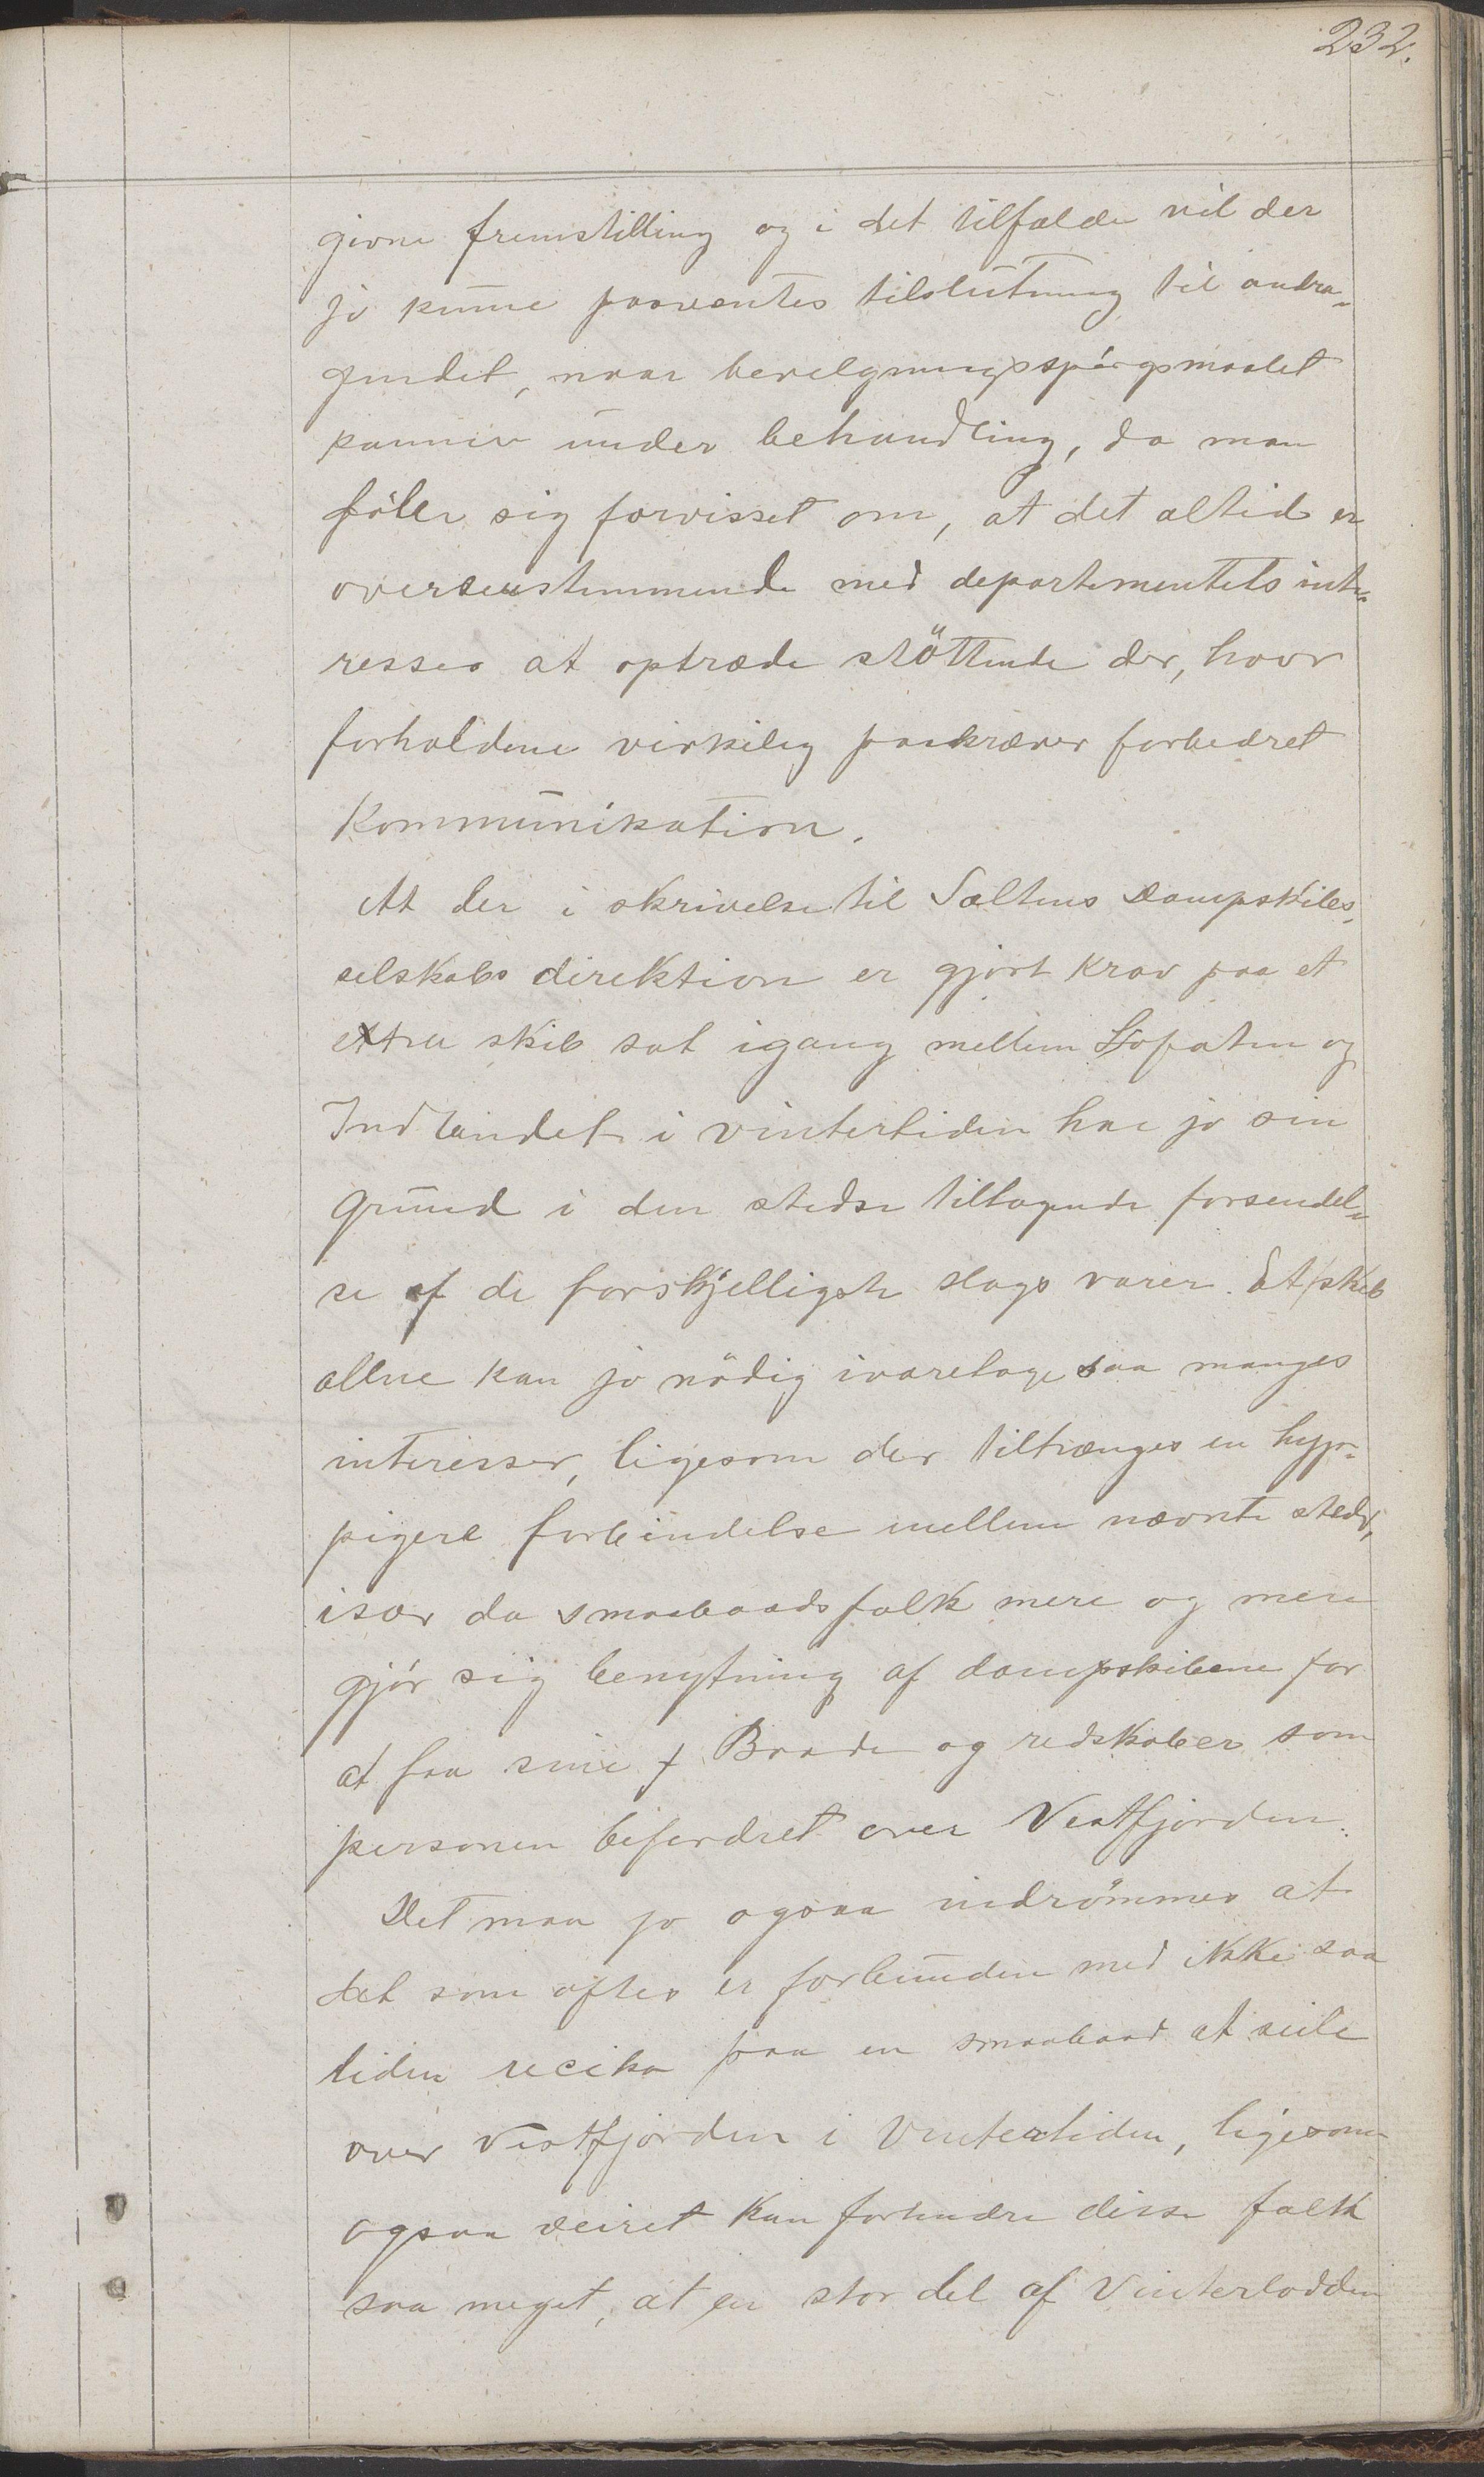 232.
givne fremstilling og i det tilfælde vil der
jo kunne paaventes tilslutning til andra-
gendet, naar bevilgningsspørgsmaalet
kommer under behandling, da man
føler sig forvisset om, at det altid er
overensstemmende med departementets inte-
resser at optræde støttende der, hvor
forholdene virkelig paakræver forbedret
Kommunikation.
At der i skrivelse til Saltens Dampskibs-
selskabs direktion er gjort krav paa et
extra skib sat igang mellem Lofoten og
Indlandet i vintertiden har jo sin
Grund i den stedse tiltagende forsendel-
se af de forskjelligste slags varer. Et skib
allene kan jo nödig ivaretage saa manges
interesser, ligesom der tiltrænges en hyp-
pigere forbindelse mellem nævnte steder,
især da smaabaadsfolk mere og mere
gjør sig benytning af dampskibene for
at faa sine Baade og redskaber som
personen befordret over Vestfjorden.
Det maa jo ogsaa indrömmes at
det som oftes er forbunden med ikke saa
liden recika paa en smaabaad at seile
over Vestfjorden i Vintertiden, ligesom
ogsaa veiret kan forhindre disse folk
saa meget, at en stor del af Vinterlodden